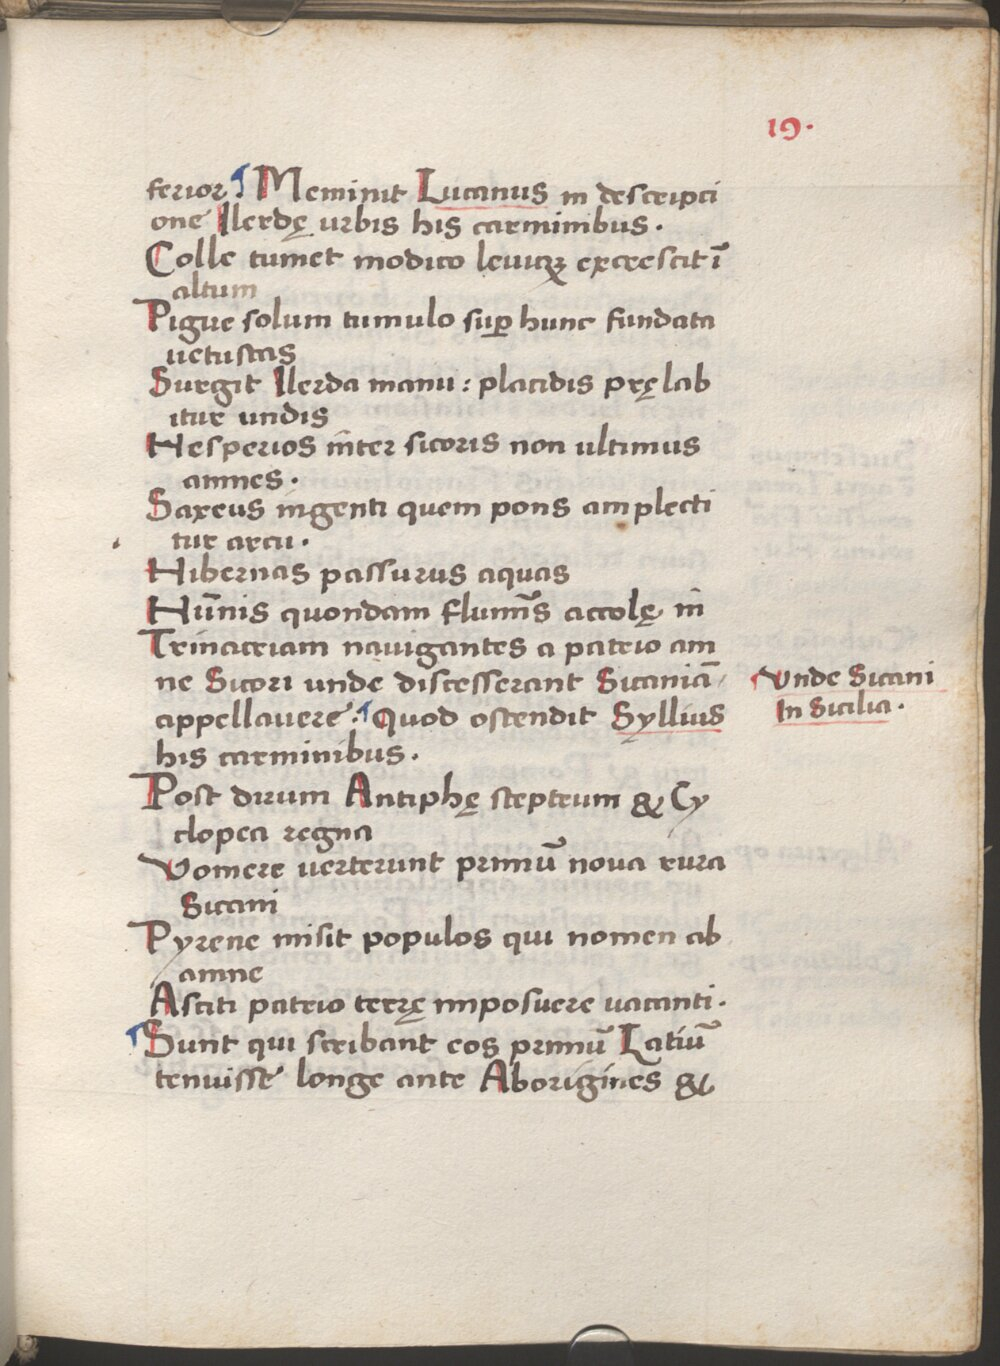 19.
ferior. ¶ Meminit Lucanus in descripci
one Ilerdę urbis his carminibus.
Colle tumet modico leuiq₃ excrescit ī
altum
Pigue solum tumulo suꝑ hunc fundata
uetustas
Surgit Ilerda manu: placidis pręlab
itur undis
Hesperios īnter sicoris non ultimus
amnes.
Saxeus ingenti quem pons amplecti
tur arcu.
Hibernas passurus aquas
Hūnis quondam flumīs accolę in
Trinacriam navigantes a patrio am
ne Sicori unde discesserant Sicaniā
appellavere. ¶ Quod ostendit Syllius
his carminibus.
Post dirum Antiphę sceptrum & Cy
clopea regna
Vomere verterunt primū nova rura
Sicani
Pyrene misit populos qui nomen ab
amne
Asciti patrio terrę imposuere vacanti.
¶ Sunt qui scribant eos primū Latiū
tenuisse longe ante Aborigines &
Vnde Sicani
In Sicilia.